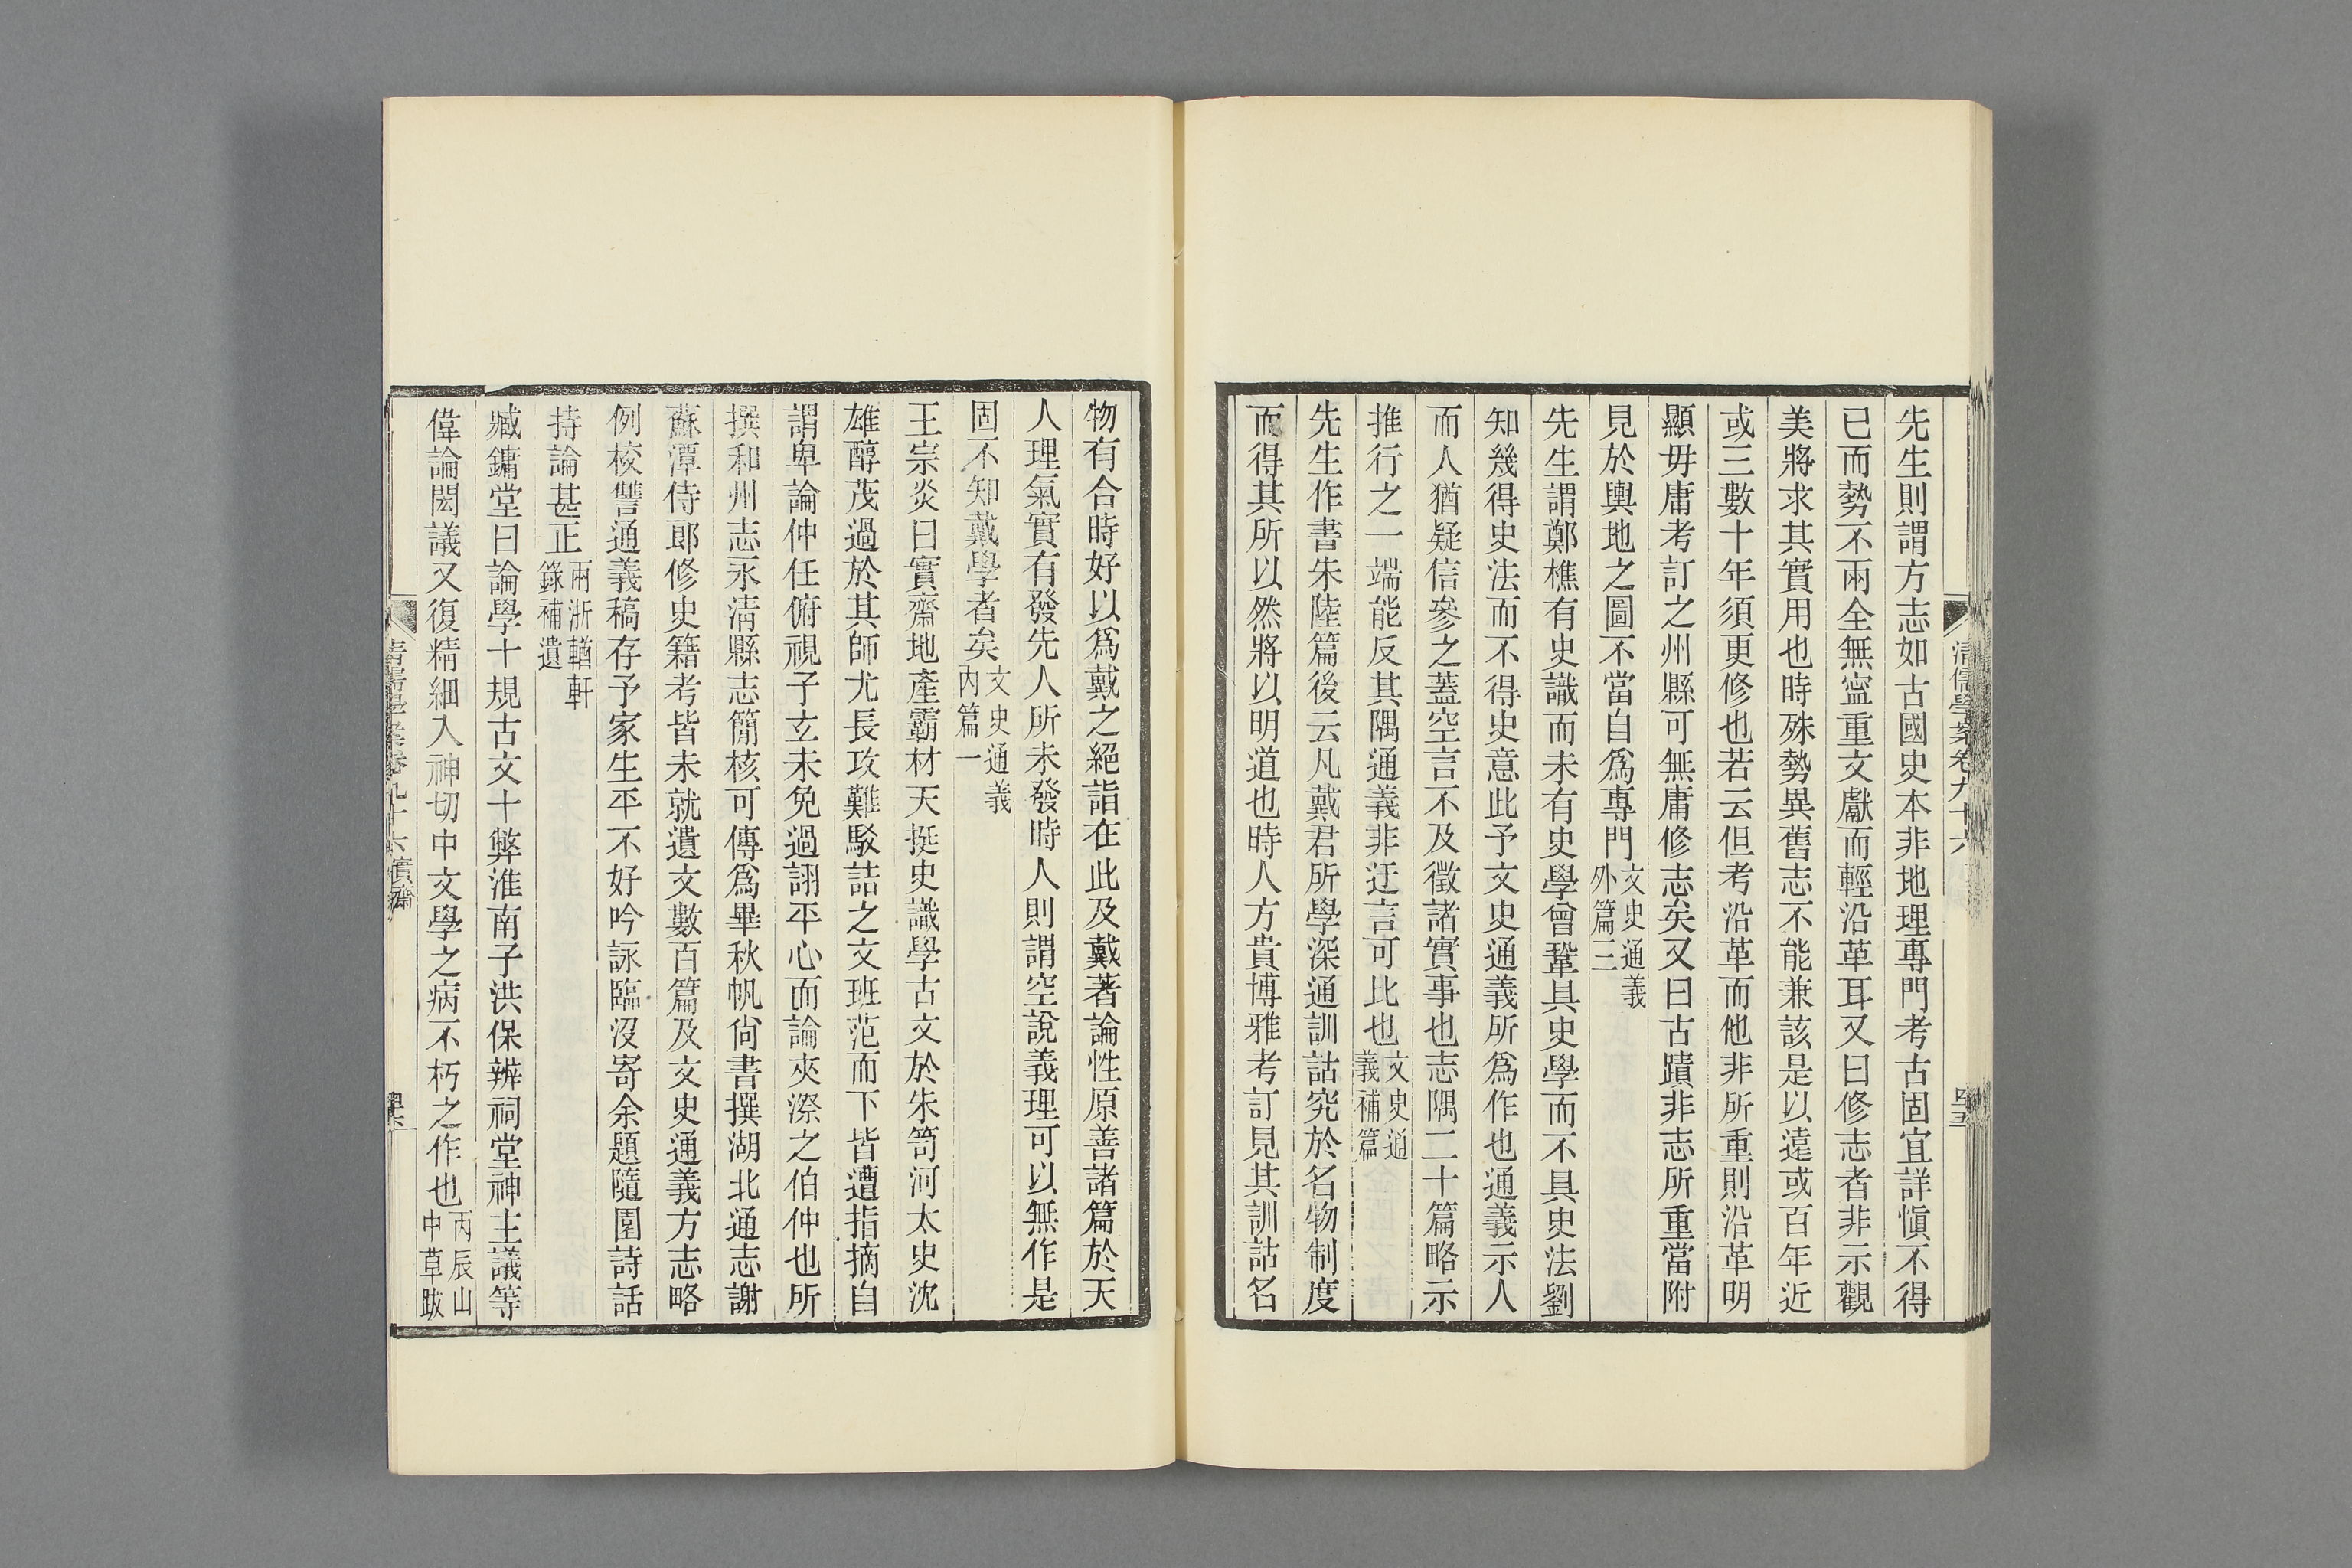 清儒學案卷九十六
先生則謂方志如古國史本非地理專門考古固宜詳愼不得
已而勢不兩全無寍重文獻而輕沿革耳又曰修志者非示觀
美將求其實用也時殊勢異舊志不能兼該是以遠或百年近
或三數十年須更修也若云但考沿革而他非所重則沿革明
顯毋庸考訂之州縣可無庸修志矣又曰古蹟非志所重當附
見於輿地之圖不當自爲專門文史通義外篇三
先生謂鄭樵有史識而未有史學曾鞏具史學而不具史法劉
知幾得史法而不得史意此予文史通義所爲作也通義示人
而人猶疑信參之蓋空言不及徵諸實事也志隅二十篇略示
推行之一端能反其隅通義非迂言可比也文史通義補篇
先生作書朱陸篇後云凡戴君所學深通訓詁究於名物制度
而得其所以然將以明道也時人方貴博雅考訂見其訓詁名
物有合時好以爲戴之絕詣在此及戴著論性原善諸篇於天
人理氣實有發先人所未發時人則謂空說義理可以無作是
固不知戴學者矣文史通義內篇一
王宗炎曰實齋地產霸材天挺史識學古文於朱笥河太史沈
雄醇茂過於其師尤長攻難駁詰之文班范而下皆遭指摘自
謂卑論仲任俯視子玄未免過詡平心而論夾漈之伯仲也所
撰和州志永淸縣志簡核可傳爲畢秋帆尙書撰湖北通志謝
蘇潭侍郎修史籍考皆未就遺文數百篇及文史通義方志略
例校讐通義稿存予家生平不好吟詠臨沒寄余題隨園詩話
持論甚正兩浙輶軒錄補遺
臧鏞堂曰論學十規古文十弊淮南子洪保辨祠堂神主議等
偉論閎議又復精細入神切中文學之病不朽之作也丙辰山中草跋
清儒學案卷九十六 實齋